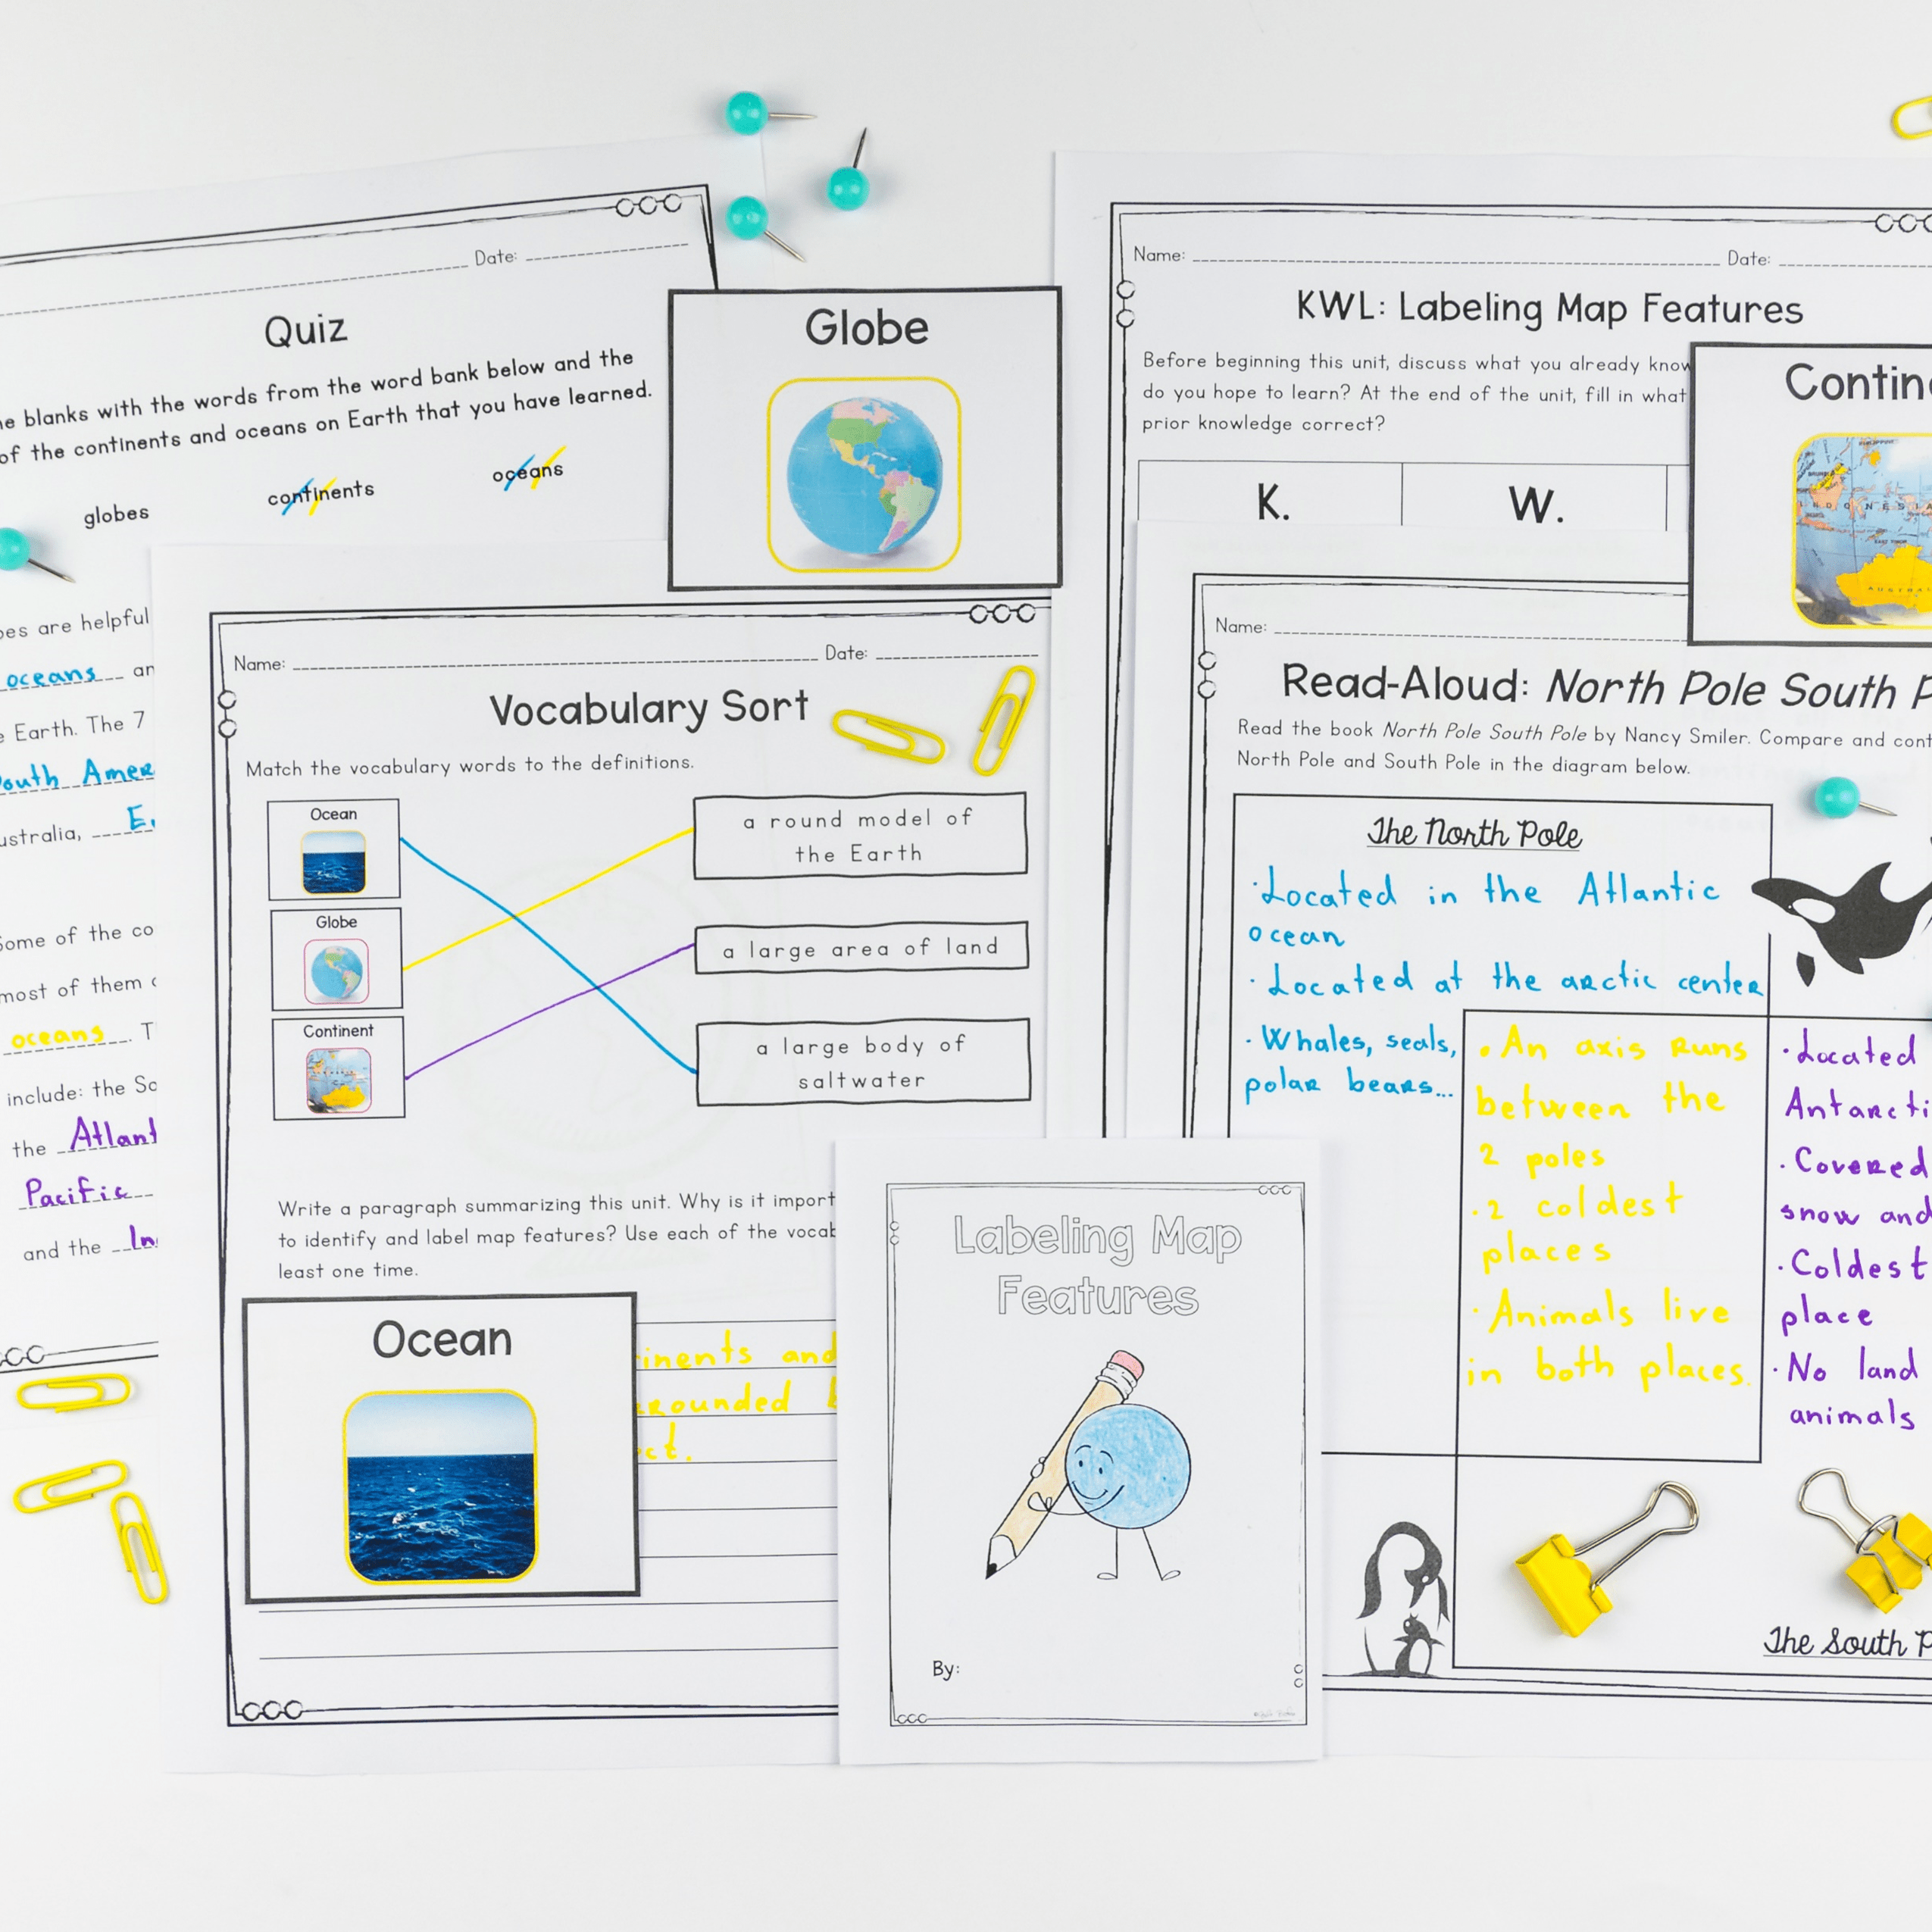 Date:
Quiz
blanks with the words from the word bank below and the
of the continents and oceans on Earth that you have learned.
globes continents oceans
are helpful
oceans
Earth. The 7
South
of the
most of them
oceans
include: the
the
Pacific
and the
Globe
Name: Date:
Vocabulary Sort
Match the vocabulary words to the definitions.
Ocean
Globe
Continent
a round model of
the Earth
a large area of land
a large body of
saltwater
Write a paragraph summarizing this unit. Why is it
to identify and label map features? Use each of the
least one time.
Ocean
and
Labeling Map
Features
By:
Name: Date:
KWL: Labeling Map Features
Before beginning this unit, discuss what you already
do you hope to learn? At the end of the unit, fill in what
prior knowledge correct?
K. W.
INDONESIA
EAST TIMOR
Name:
Read-Aloud: North Pole South
Read the book North Pole South Pole by Nancy Smiler. Compare and
North Pole and South Pole in the diagram below.
The North Pole
·Located in the Atlantic
ocean
·Located at the arctic center
·Whales, seals,
polar bears...
·An axis runs
between the
2 poles
·2 coldest
places
·Animals live
in both places.
·Located
·Covered
snow and
·Coldest
place
·No land
animals
The South